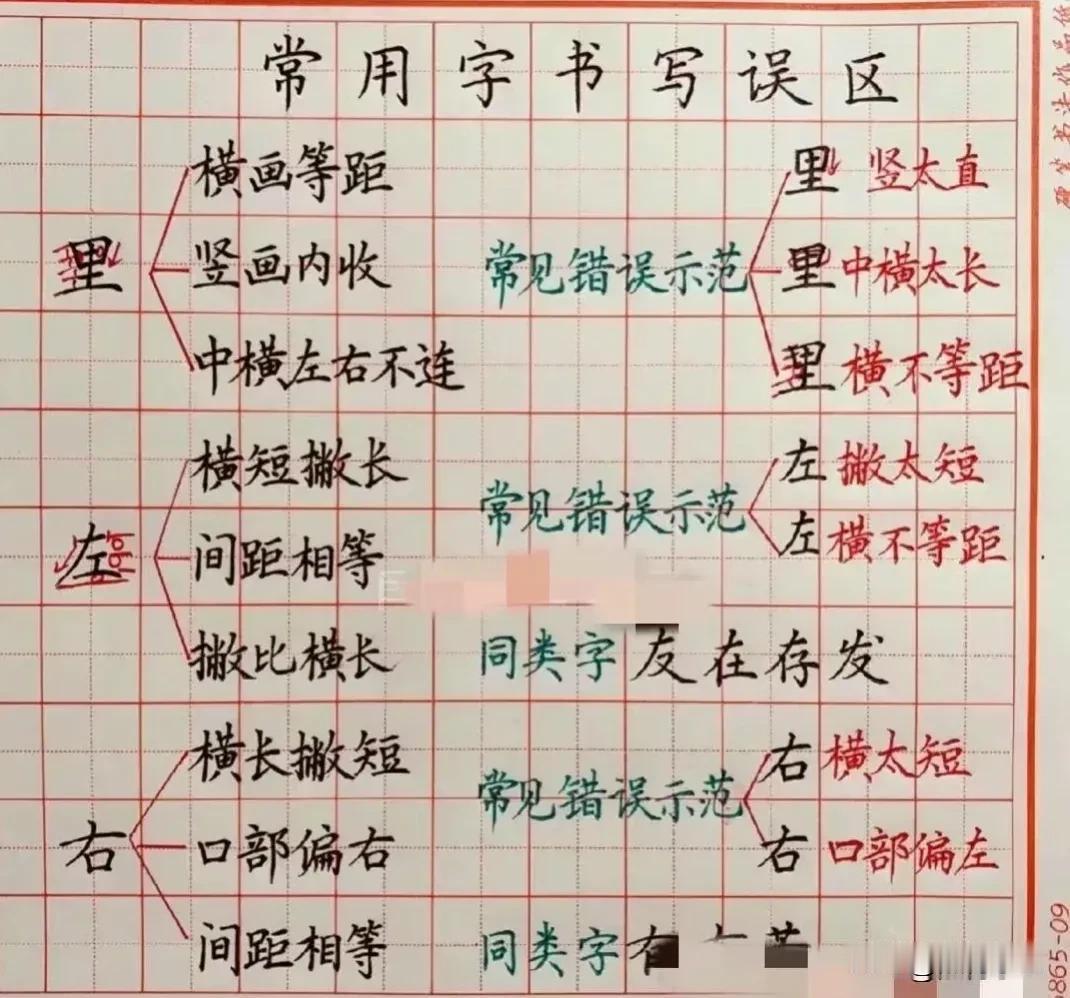 常用字书写误区
横画等距 里 竖太直
里 竖画内收 常见错误示范 里 中横太长
中横左右不连 里 横不等距
横短撇长 左 撇太短
常见错误示范
左 间距相等 左 横不等距
撇比横长 同类字 友在存发
横长撇短 右 横太短
常见错误示范
右 口部偏右 右 口部偏左
间距相等 同类字 有
硬笔书法作品纸
865-09